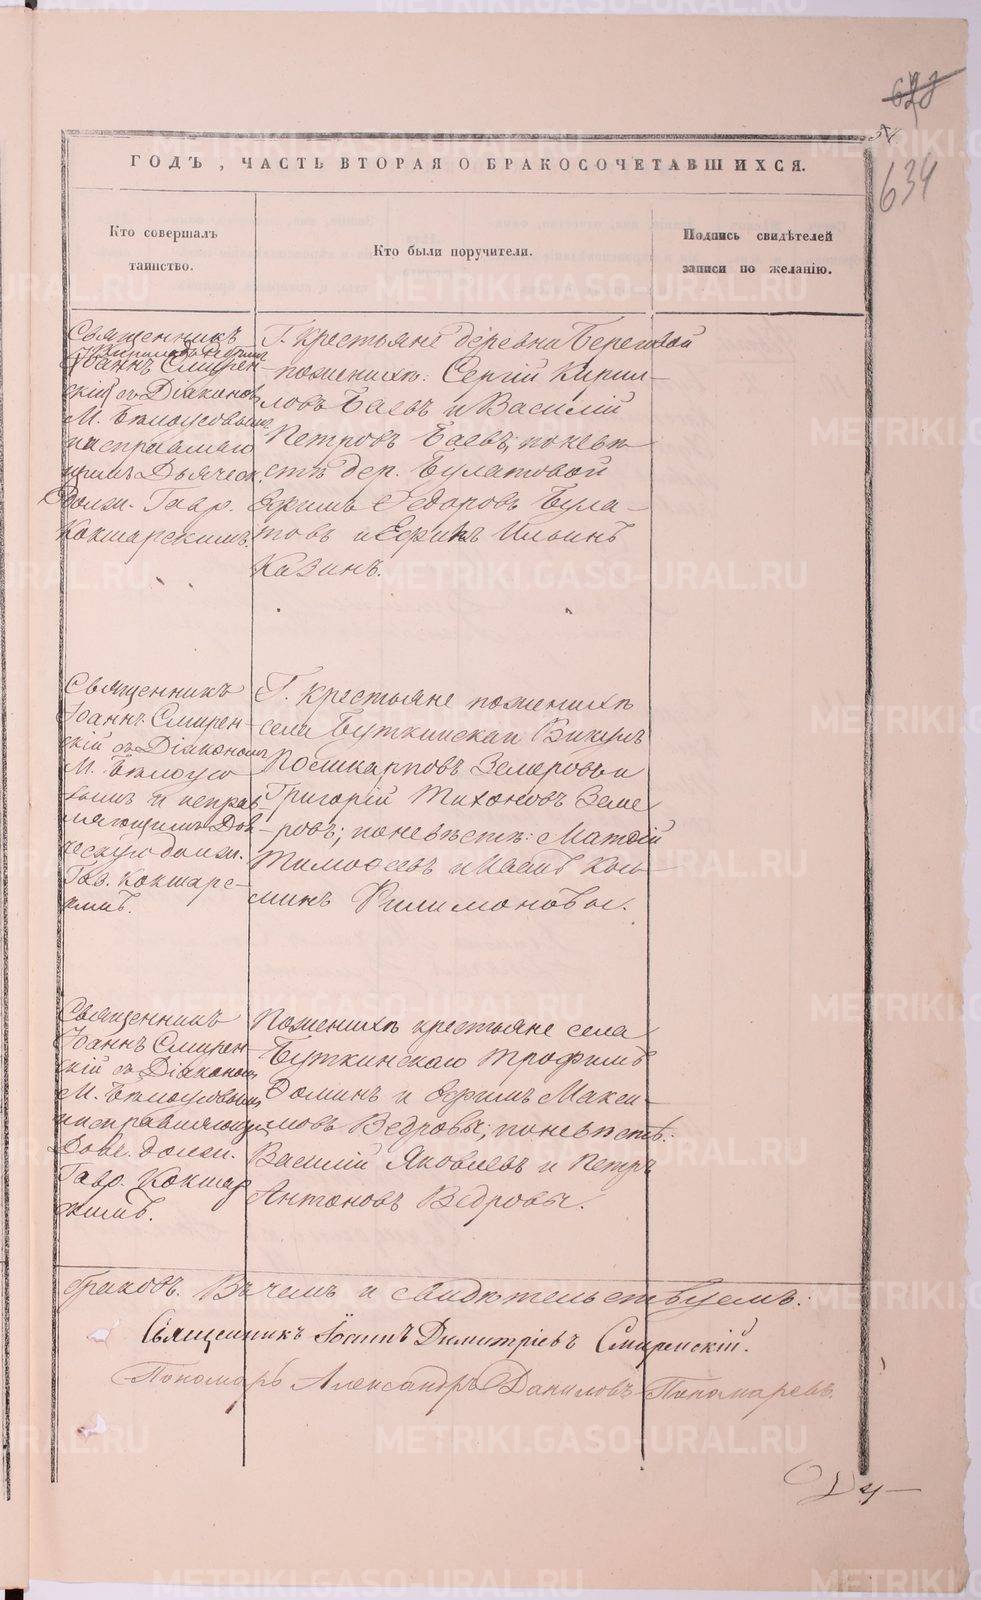 634
ГОДЪ, ЧАСТЬ ВТОРАЯ О БРАКОСОЧЕТАВШИХСЯ.
Кто совершалъ
таинство.
Кто были поручители.
Подпись свидѣтелей
записи по желанію.
Священникъ
Іоаннъ Смирен-
скій съ Діаконом
М. Бѣлоусовымъ
Долж. Гавр.
Кокшарскимъ.
Г. крестьяне деревни Береговой
по женихѣ: Сергій Кирил-
ловъ Баевъ и Василій
Петровъ Баевъ; по невѣ
стѣ дер. Булатовой
Ефимъ Ѳедоровъ Була-
товъ и Ефимъ Ильинъ
Казинъ.
Священникъ
Іоаннъ Смирен-
скій съ Діакономъ
М. Бѣлоусо
вымъ и исправ
ляющимъ Дья
ческую долж.
Гав. Кокшарс-
кимъ.
Г. крестьяне по женихѣ
села Буткинскаго Викулъ
Поликарповъ Земеровъ и
Григорій Тихоновъ Земе
ровъ; по невѣстѣ: Матѳій
Тимофеевъ и Иванъ Козь-
минъ Филимоновы.
Священникъ
Іоаннъ Смирен-
скій съ Діаконом
М. Бѣлоусовымъ
долж.
Гавр. Кокшар
скимъ.
По женихѣ крестьяне села
Буткинскаго Трофимъ
Фоминъ и Ефимъ Макси-
мовъ Ведровы; по невѣстѣ:
Василій Яковлевъ и Петръ
Антоновъ Ведровы.
браковъ. Въ чемъ и свидѣтельствуемъ:
Священникъ Іоаннъ Димитріевъ Смиренскій.
Пономарь Александръ Даниловъ Пономаревъ.
METRIKI.GASO-URAL.RU